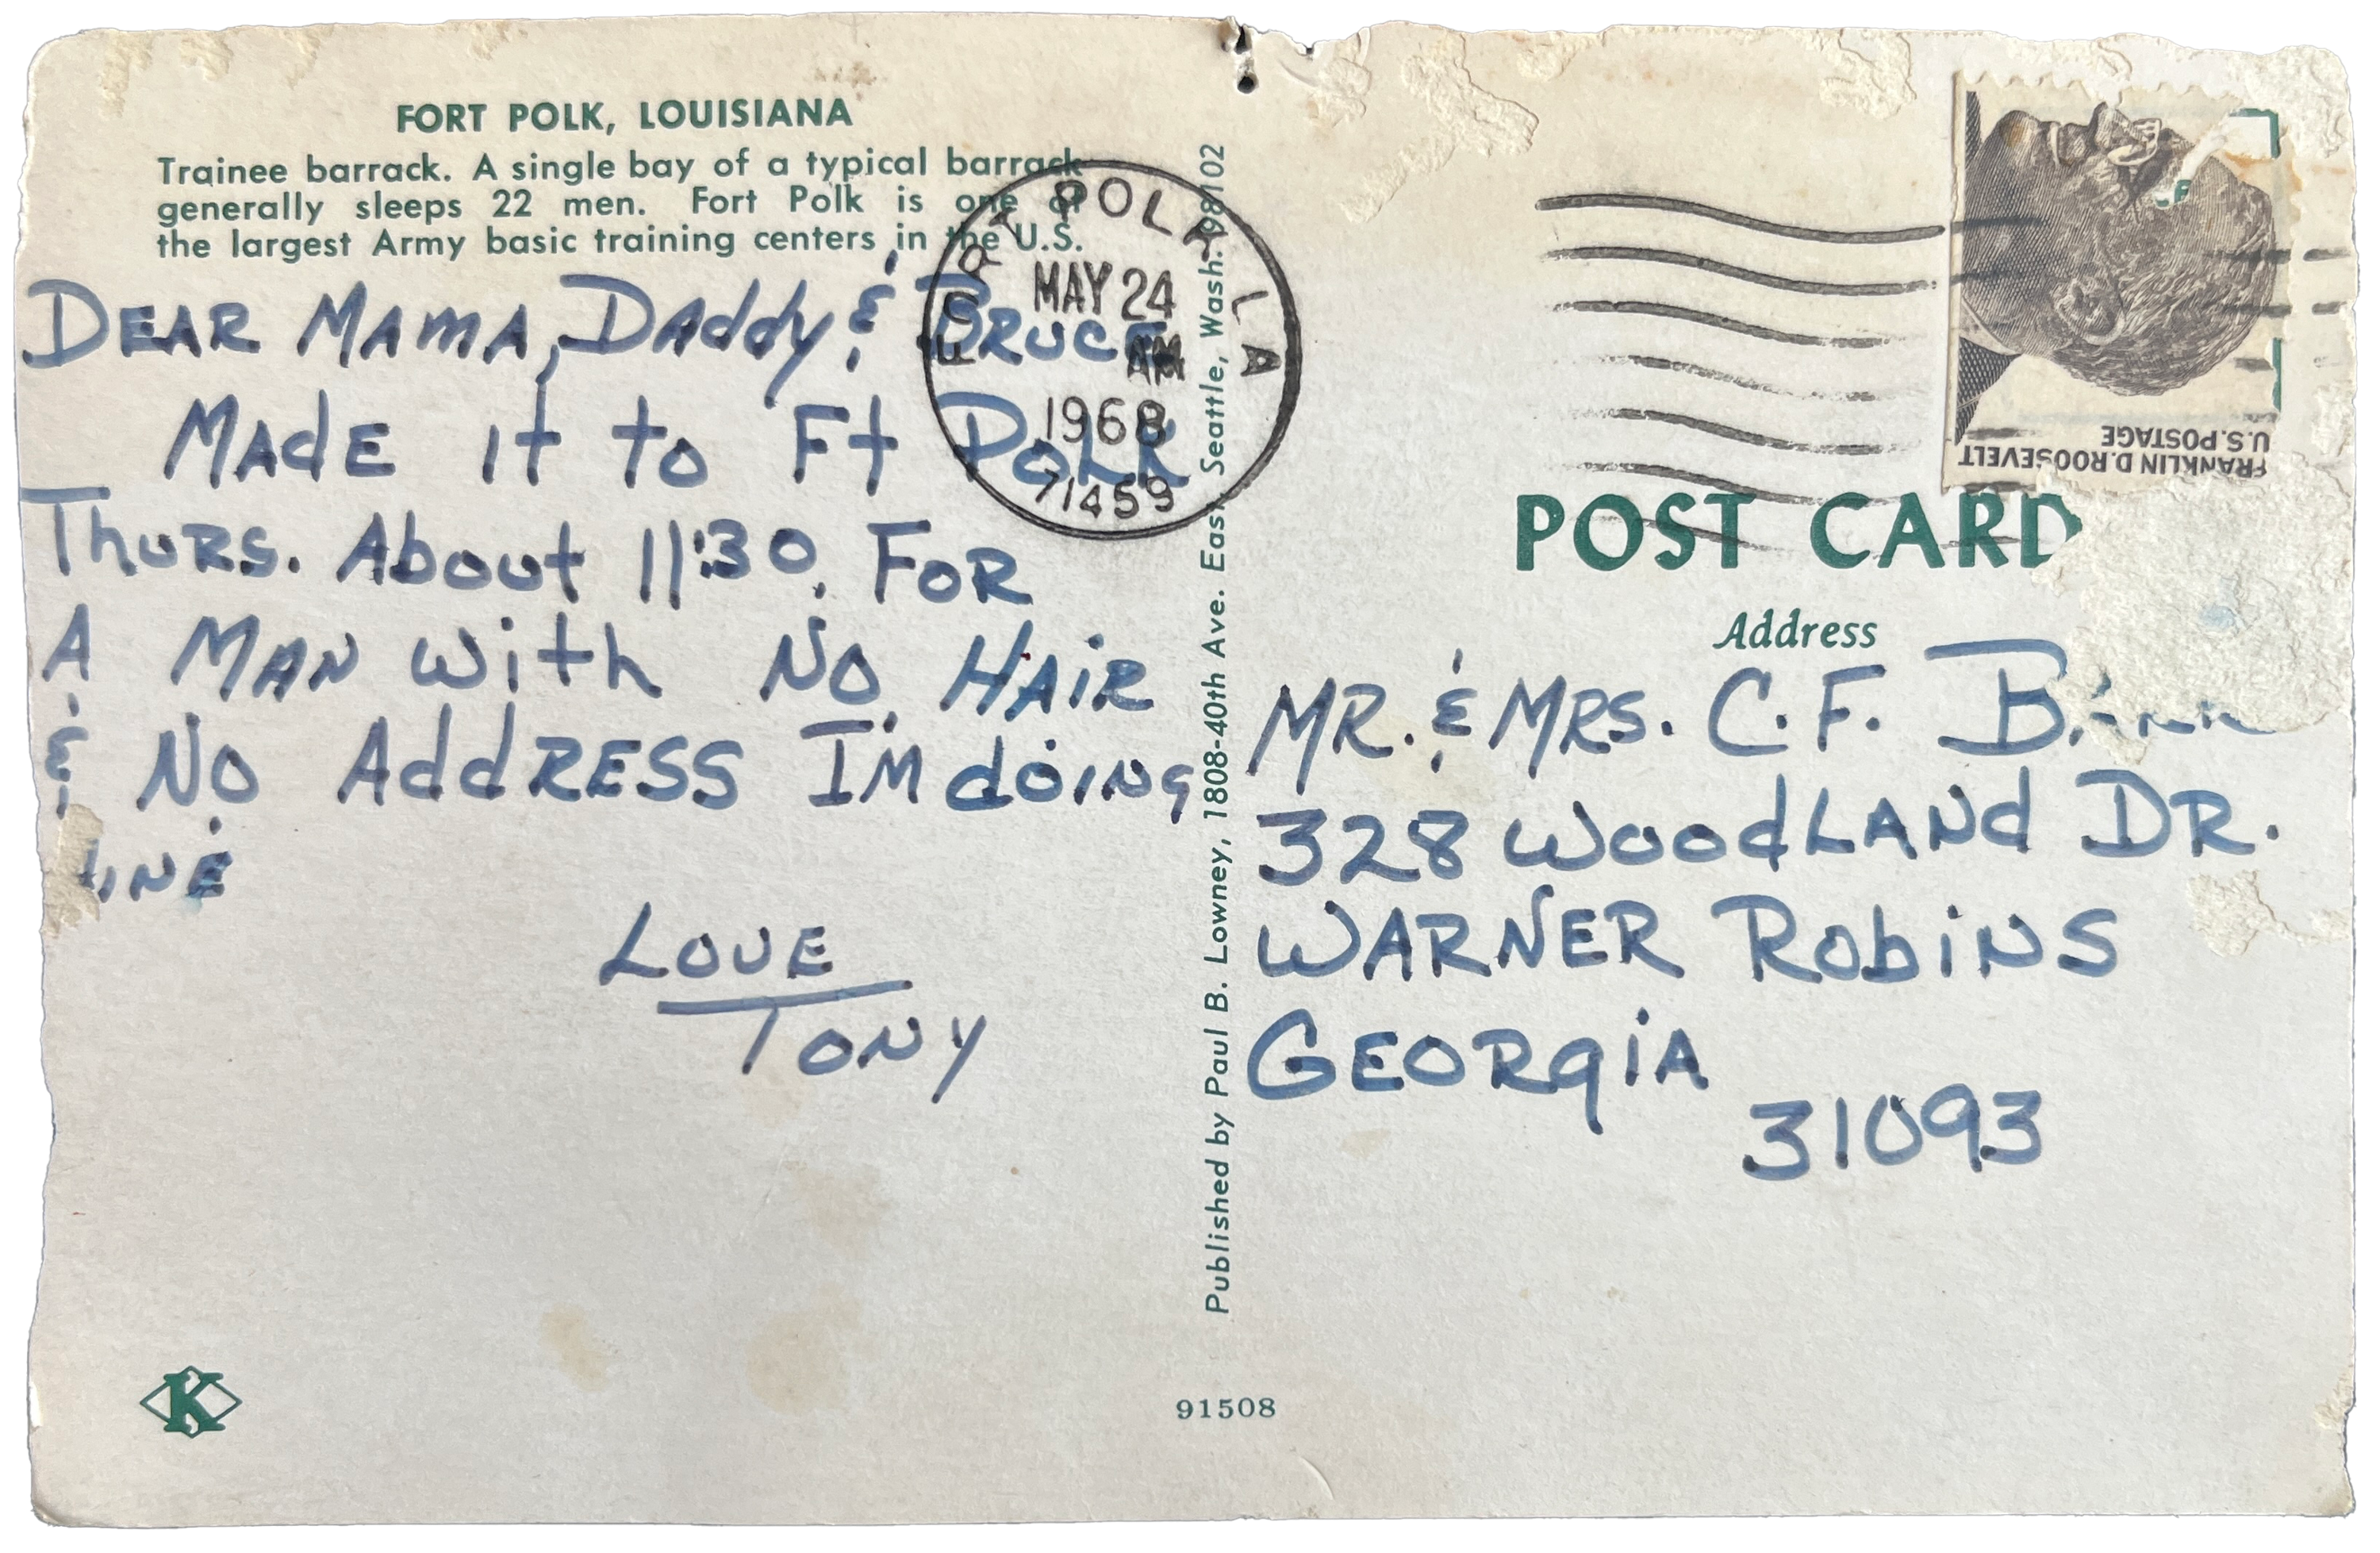 FORT POLK, LOUISIANA
Trainee barrack. A single bay of a typical barrack
generally sleeps 22 men. Fort Polk is one of
the largest Army basic training centers in the U.S.
DEAR MAMA, DAddy & BRUCE,
MAdE it to Ft POLK
ThURS. About 11:30. FOR
A MAN with NO HAiR
& NO AddRESS IM doiNg
iNE
LOVE
TONY
FORT POLK LA
MAY 24
AM
1968
71459
Published by Paul B. Lowney, 1808-40th Ave. East Seattle, Wash. 98102
91508
K
FRANKLIN D. ROOSEVELT
U.S. POSTAGE
POST CARD
Address
MR. & MRS. C. F.
328 WoodLANd DR.
WARNER RobiNS
GEORgiA
31093